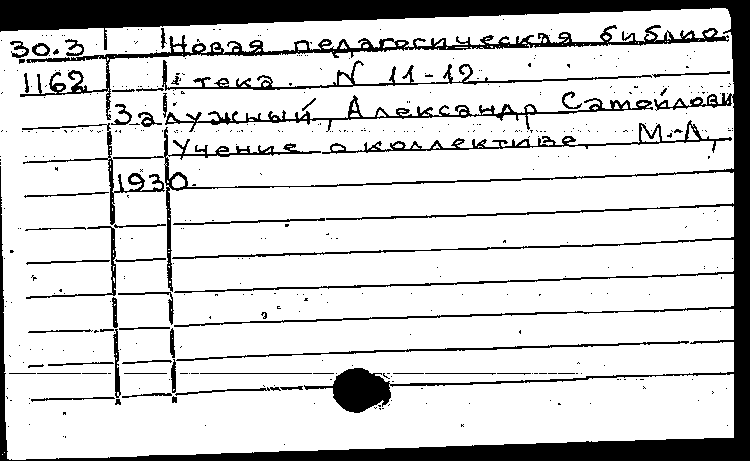 30.3 Новая педагогическая библио-
1162 тека. N 11-12.
Залужный, Александр Самойлови
Учение о коллективе. М.-Л,
1930.